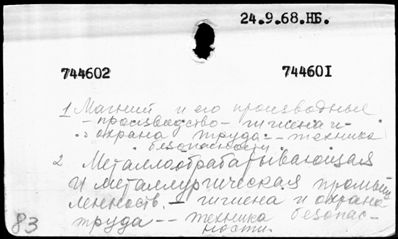 24.9.68.НБ.
744602 744601
1 Магний и его производные
- производство - гигиена и
охрана труда - техника
безопасности
2 Металлообрабатывающая
и металлургическая промыш
ленность. - гигиена и охрана
труда -- техника безопас-
ности.
83